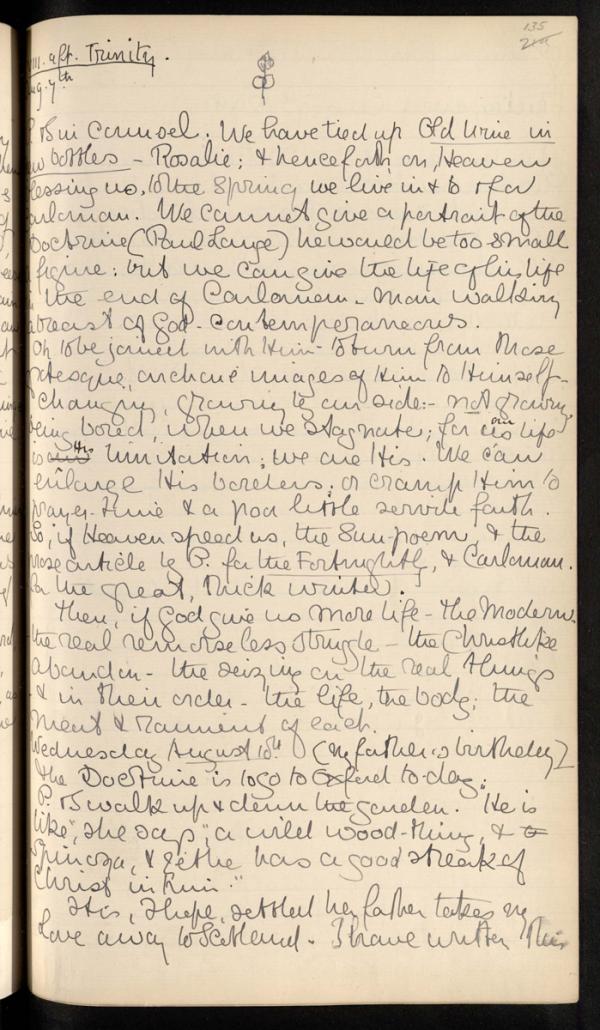 135
aft. Trinity.
Aug. 7th
in Counsel. We have tied up Old Wine in
bottles – Rosalie; & henceforth on, Heaven
blessing us, to the Spring we live in & to & for
Carloman. We cannot give a portrait of the
Doctrine (Paul Lange) he would be too small
figure: but we can give the life of his life
the end of Carloman – man walking
abreast of God – contemporaneous.
Oh to be joined with Him – to turn from those
grotesque, archaic images of Him to Himself –
Changing, growing by our side:– not growing,
being bored, when we stagnate; for our life
is His limitation; we are His. We can
enlarge His borders; or cramp Him to
prayer-time & a poor little servile faith.
So, if Heaven speed us, the Sun-poem, & the
prose article by P. for the Fortnightly, & Carloman.
for the great, thick winter.
Then, if God give us more life – the Modern.
the real remorseless struggle – the Christlike
abandon – the seizing on the real things
& in their order – the life, the body; the
meat & raiment of each.
Wednesday August 10th (My father's birthday)
The Doctrine is to go to Oxford to-day.
P. & walk up & down the garden. He is
like, "she says", "a wild wood-thing, &
Spinoza, & he has a good streak of
Christ in him."
It is, I hope, settled her father takes my
Love away to Scotland. I have written this